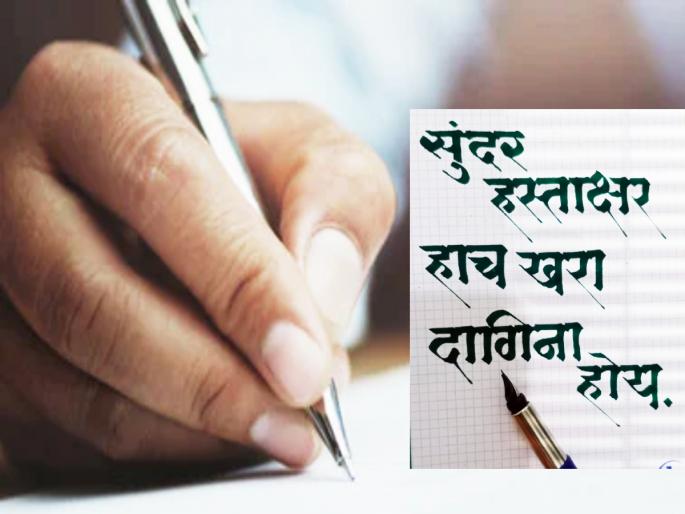 सुंदर
हस्ताक्षर
हाच खरा
दागिना
होय.